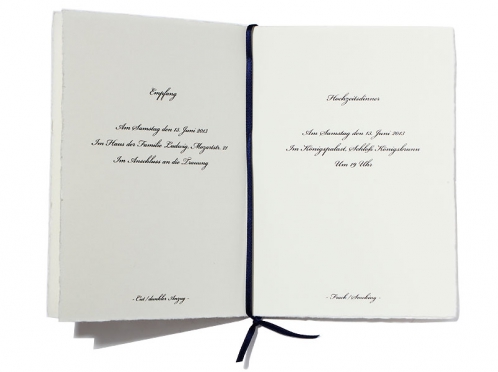 Empfang
Am Samstag den 15. Juni 2013
Im Haus der Familie Ludwig, Mozartstr. 21
Im Anschluss an die Trauung
- Cut / dunkler Anzug -
Hochzeitsdinner
Am Samstag den 15. Juni 2013
Im Königspalast, Schloß Königsbrunn
Um 19 Uhr
- Frack / Smoking -